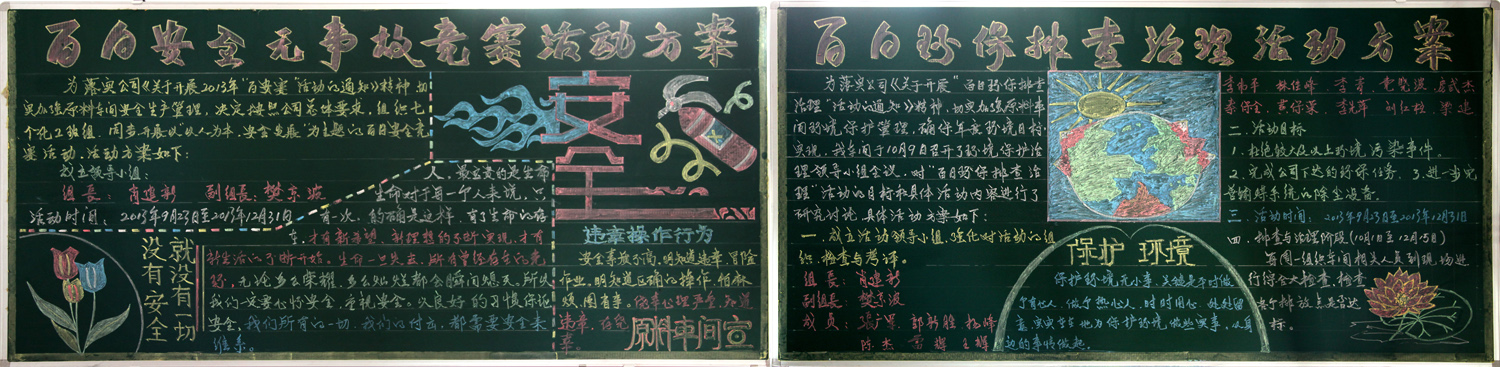 百日安全无事故竞赛活动方案
为落实公司《关于开展2013年"百安赛"活动的通知》精神,切
实加强原料车间安全生产管理,决定按照公司总体要求,组织七
个化工班组,同步开展以"以人为本,安全发展"为主题的百日安全竞
赛活动,活动方案如下:
成立领导小组:
组长:肖进新 副组长:樊东波
活动时间:2013年9月23日至2013年12月31日
安全
人,最宝贵的是生命
生命对于每一个人来说,只
有一次,的确是这样,有了生命的存
在,才有新希望,新理想的不断实现,才有
新生活的不断开始。生命一旦失去,所有曾经存在的
无论多么荣耀,多么灿烂都会瞬间熄灭。所以
我们一定要心怀安全,重视安全。以良好的习惯保证
安全,我们所有的一切,我们的付出,都需要安全来
维系。
就没有一切
没有安全
违章操作行为
安全事故不高,明知违章,冒险
作业,明知正确的操作,怕麻
烦,图省事。侥幸心理严重,知道
违章
原料车间宣
百日环保排查治理活动方案
为落实公司《关于开展"百日环保排查
治理"活动的通知》精神,切实加强原料车
间环境保护管理,确保年度环境目标
实现,我车间于10月9日召开了环境保护治
理领导小组会议,对"百日环保排查治
理"活动的目标和具体活动内容进行了
研究讨论,具体活动方案如下:
一、成立活动领导小组,强化对活动的组
织、检查与考评。
组长:肖进新
副组长:樊东波
成员:
郭新胜 杨峰
陈杰 雷辉 王辉
保护 环境
保护环境无小事,关键是平时做
个有心人,做个热心人,时时用心,处处留
意,实实在在地为保护环境做些实事,从身
边的事情做起。
二、活动目标
1、杜绝较大及以上环境污染事件。
2、完成公司下达的环保任务。3、进一步完
善输料系统的除尘设备。
三、活动时间:2013年9月23日至2013年12月31日
四、排查与治理阶段(10月1日至12月15日)
每周一组织车间相关人员到现场进
行综合大检查,检查
各个排放点是否达
标。